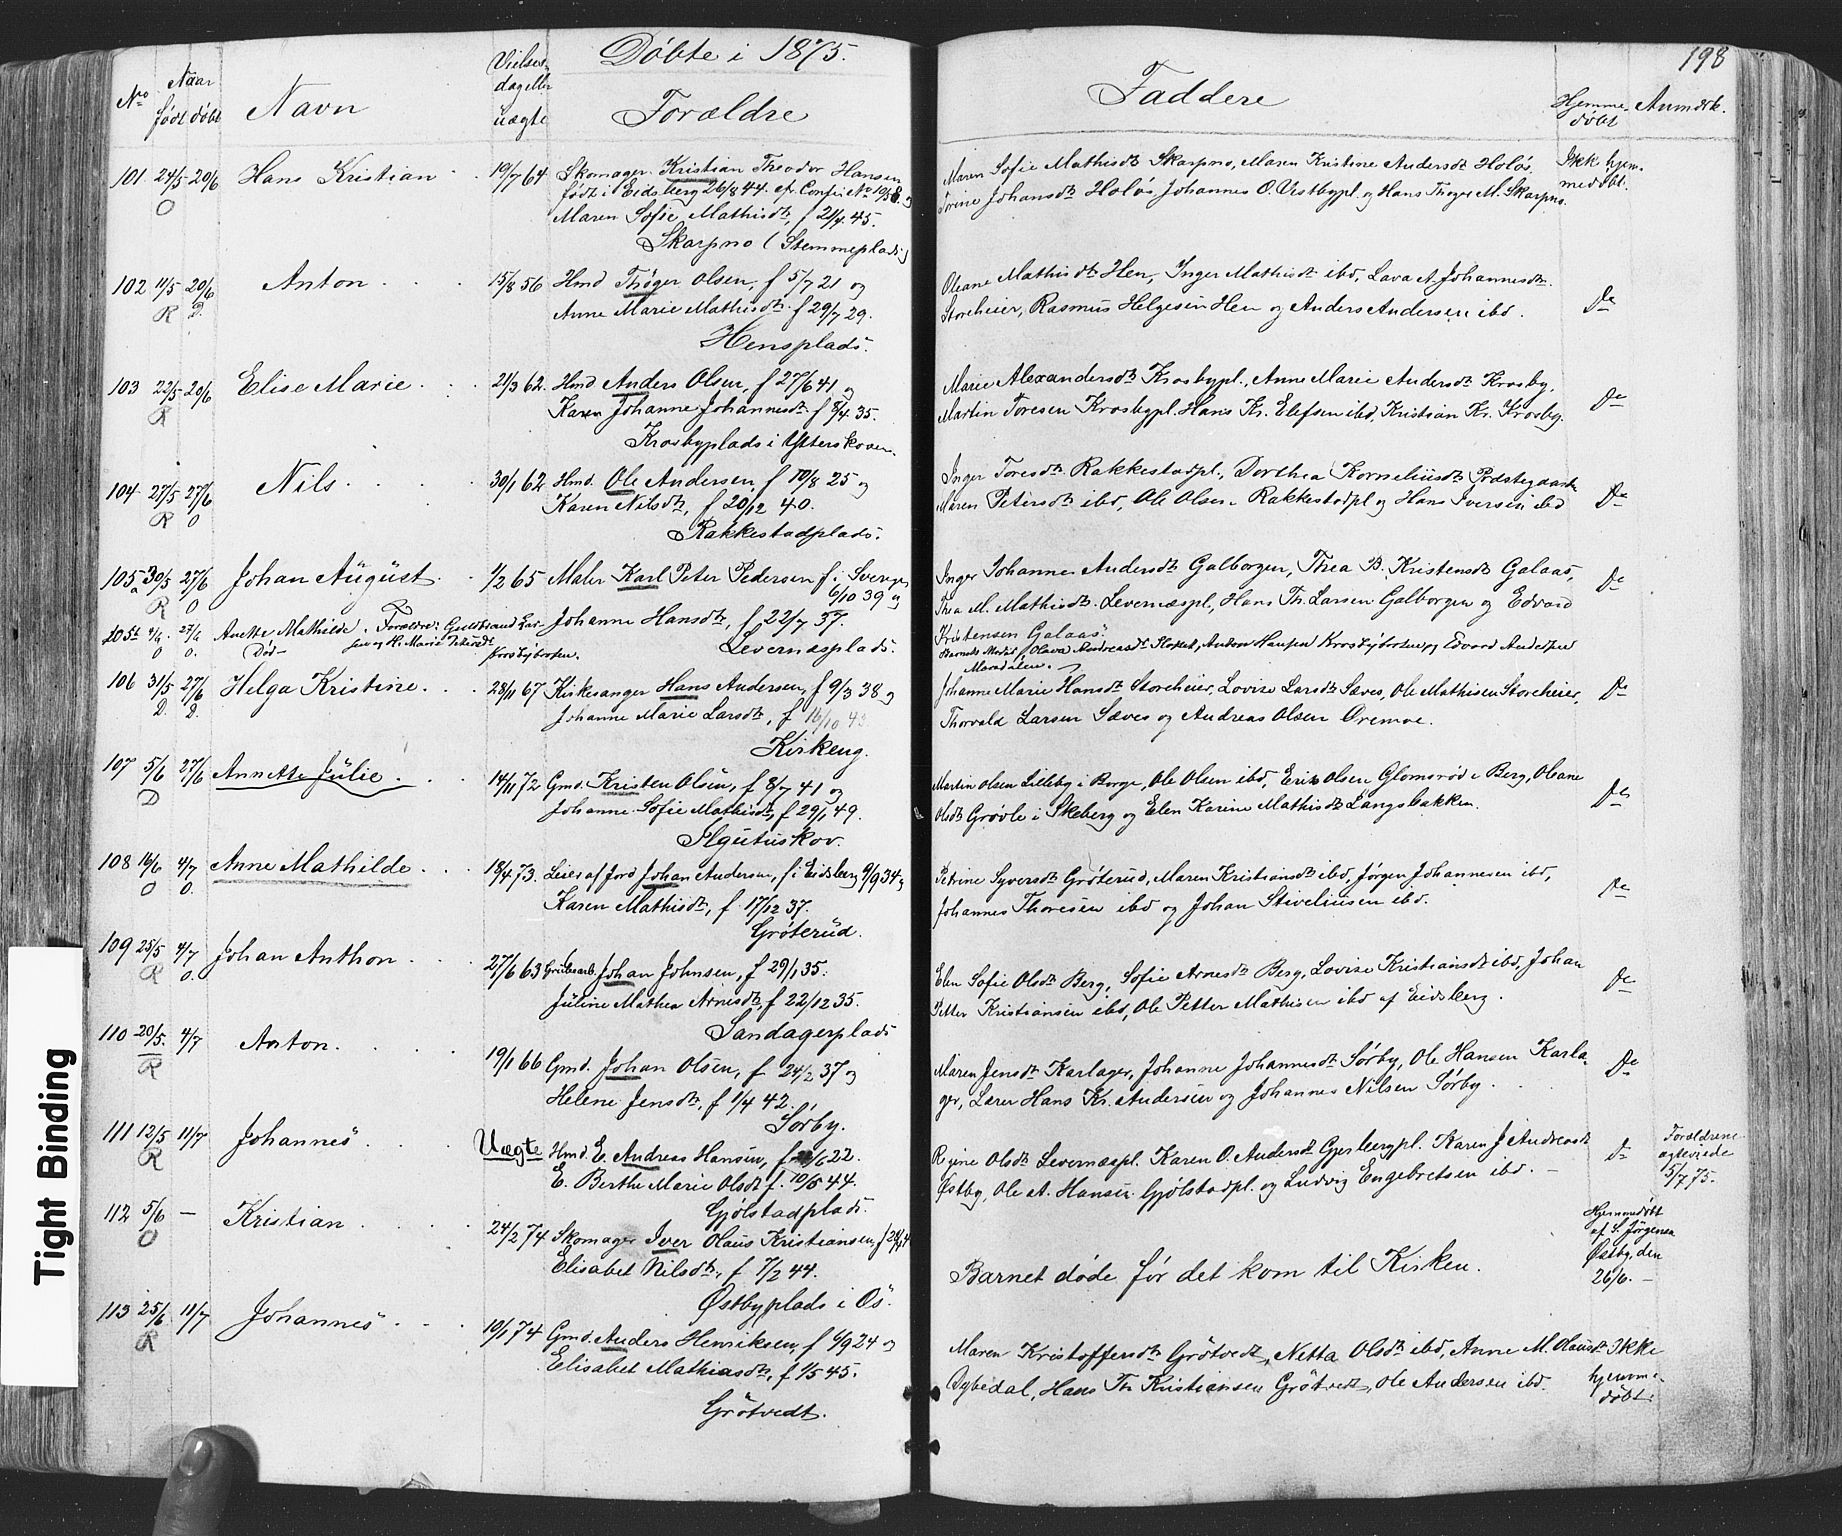 Döbte i 1875.
198
No
Naar
født döbt
Navn
Vielses-
dag eller
uægte
Forældre
Faddere
Hjemme-
döbt
Anmerk.
101 24/5 20/6 Hans Kristian 19/7 64 Skomager Kristian Theodor Hansen
O født i Eidsberg 26/8 44 ef. Conf. No 10/58 og
Maren Sofie Mathisdt, f 21/4 45.
Skarpno (Stemmeplads)
Maren Sofie Mathisdt Skarpno, Maren Kristine Andersdt Holös,
Torine Johansdt Holös, Johannes O. Vestbypl. og Hans Thoger M. Skarpno.
Ikk hjem-
medöbt.
102 11/5 20/6 Anton 15/8 56 Hmd Thöger Olsen, f 5/7 21 og
R D. Anne Marie Mathisdt f 29/7 29.
Hensplads.
Oleane Mathisdt Hen, Inger Mathisdt ibd, Lava A. Johannesdt
Storeheier, Rasmus Helgesen Hen og Anders Andersen ibd.
Do
103 22/5 20/6 Elise Marie 21/3 62. Hmd Anders Olsen, f 27/6 41 og
R Karen Johanne Johannesdt f 8/4 35.
Krosbyplads i Ytterskoven.
Marie Alexandersdt Krosbypl., Anne Marie Andersdt Krosby,
Martin Toresen Krosbypl. Hans Kr. Elefsen ibd, Kristian Kr. Krosby.
Do
104 27/5 27/6 Nils 30/1 62 Hmd. Ole Andersen, f 10/8 25 og
R O Karen Nilsdt, f 20/12 40.
Rakkestadplads.
Inger Toresdt Rakkestadpl., Dorthea Korneliusdt Præstegaarden
Maren Petersdt ibd, Ole Olsen Rakkestadpl og Hans Iversen ibd
Do
105 a 30/5 27/6 Johan August 1/2 65 Maler Karl Peter Pedersen f i Sverige
R O 6/10 39 og
Johanne Hansdt, f 22/7 37.
Levernæsplads.
Inger Johanne Andersdt Galborgen, Thea B. Kristensdt Galaas,
Thea M. Mathisdt Levernæspl, Hans Th. Larsen Galborgen og Edvard
Kristensen Galaas.
Do
105b 4/6 27/6 Anette Mathilde. Forældre: Guldbrand Lar-
O O. Död sen og H. Marie Petersdt
Krosbybraaten.
Barnets Moder, Olava Andreasdt Slottet, Anton Hansen Krosbybraten og Edvard Andersen
Marudalen.
106 31/5 27/6 Helga Kristine 28/11 67 Kirkesanger Hans Andersen, f 9/3 38 og
D. D. Johanne Marie Larsdt, f 16/10 43.
Kirkeng.
Johanne Marie Hansdt Storeheier, Lovise Larsdt Sæves, Ole Mathisen Storeheier,
Thorvald Larsen Sæves og Andreas Olsen Oremoe.
Do
107 5/6 27/6 Annette Julie 14/11 72 Gmd. Kristen Olsen, f 8/7 41 og
D Johanne Sofie Mathisdt, f 29/1 49.
Agutuskov.
Martin Olsen Lilleby i Borge, Ole Olsen ibd, Erik Olsen Glomsröd i Berg, Oleane
Olsdt Grövle i Skeberg og Elen Karine Mathisdt Langsbakken.
Do
108 16/6 4/7 Anne Mathilde 18/4 73. Leier af Jord Johan Andersen, f i Eidsberg 9/9 34 og
O O. Karen Mathisdt, f 17/12 37.
Gröterud.
Petrine Syversdt Gröterud, Maren Kristiansdt ibd, Jörgen Johannesen ibd,
Johannes Thoresen ibd og Johan Stiveliusen ibd.
Do
109 25/5 4/7 Johan Anthon 27/6 63 Grubearb. Johan Johnsen, f 29/1 35.
R O. Juline Mathea Arnesdt, f 22/12 35.
Sandagerplads
Elen Sofie Olsdt Berg, Sofie Arnesdt Berg, Lovise Kristiansdt ibd, Johan
Petter Kristiansen ibd, Ole Petter Mathisen ibd af Eidsberg.
Do
110 20/5. 4/7 Anton. 19/1 66 Gmd. Johan Olsen, f 24/2 37 og
R Helene Jensdt, f 1/4 42.
Sörby.
Maren Jensdt Karlager, Johanne Johannesdt Sörby, Ole Hansen Karla-
ger, Lærer Hans Kr. Andersen og Johannes Nilsen Sörby.
Do
111 12/5 11/7 Johannes Uægte Hmd. E. Andreas Hansen, f /6 22.
R E. Berthe Marie Olsdt f. 10/5 44.
Gjölstadplads.
Regine Olsdt Levernæspl. Karen O. Andersdt Gjersbergpl. Karen J Andreasdt
Östby, Ole A. Hansen Gjölstadpl. og Ludvig Engebretsen ibd.
Do
Forældrene
ægteviede
5/7 75.
112 5/6 — Kristian 24/2 74 Skomager Iver Olaus Kristiansen,
O Elisabet Nilsdt, f 7/2 44.
Østbyplads i Os.
Barnet döde för det kom til Kirken.
Hjemmedöbt
af S. Jörgensen
Østby, den
26/6.
113 25/6 11/7 Johannes 10/1 74 Gmd. Anders Henriksen, f 6/9 24 og
R Elisabet Mathiasdt, f 1/5 45.
Grötvedt.
Maren Kristoffersdt Grötvedt, Netta Olsdt ibd, Anne M. Olausdt
Dybedal, Hans Th Kristiansen Grötvedt, Ole Andersen ibd.
Ikke
hjemme-
döbt.
Tight Binding